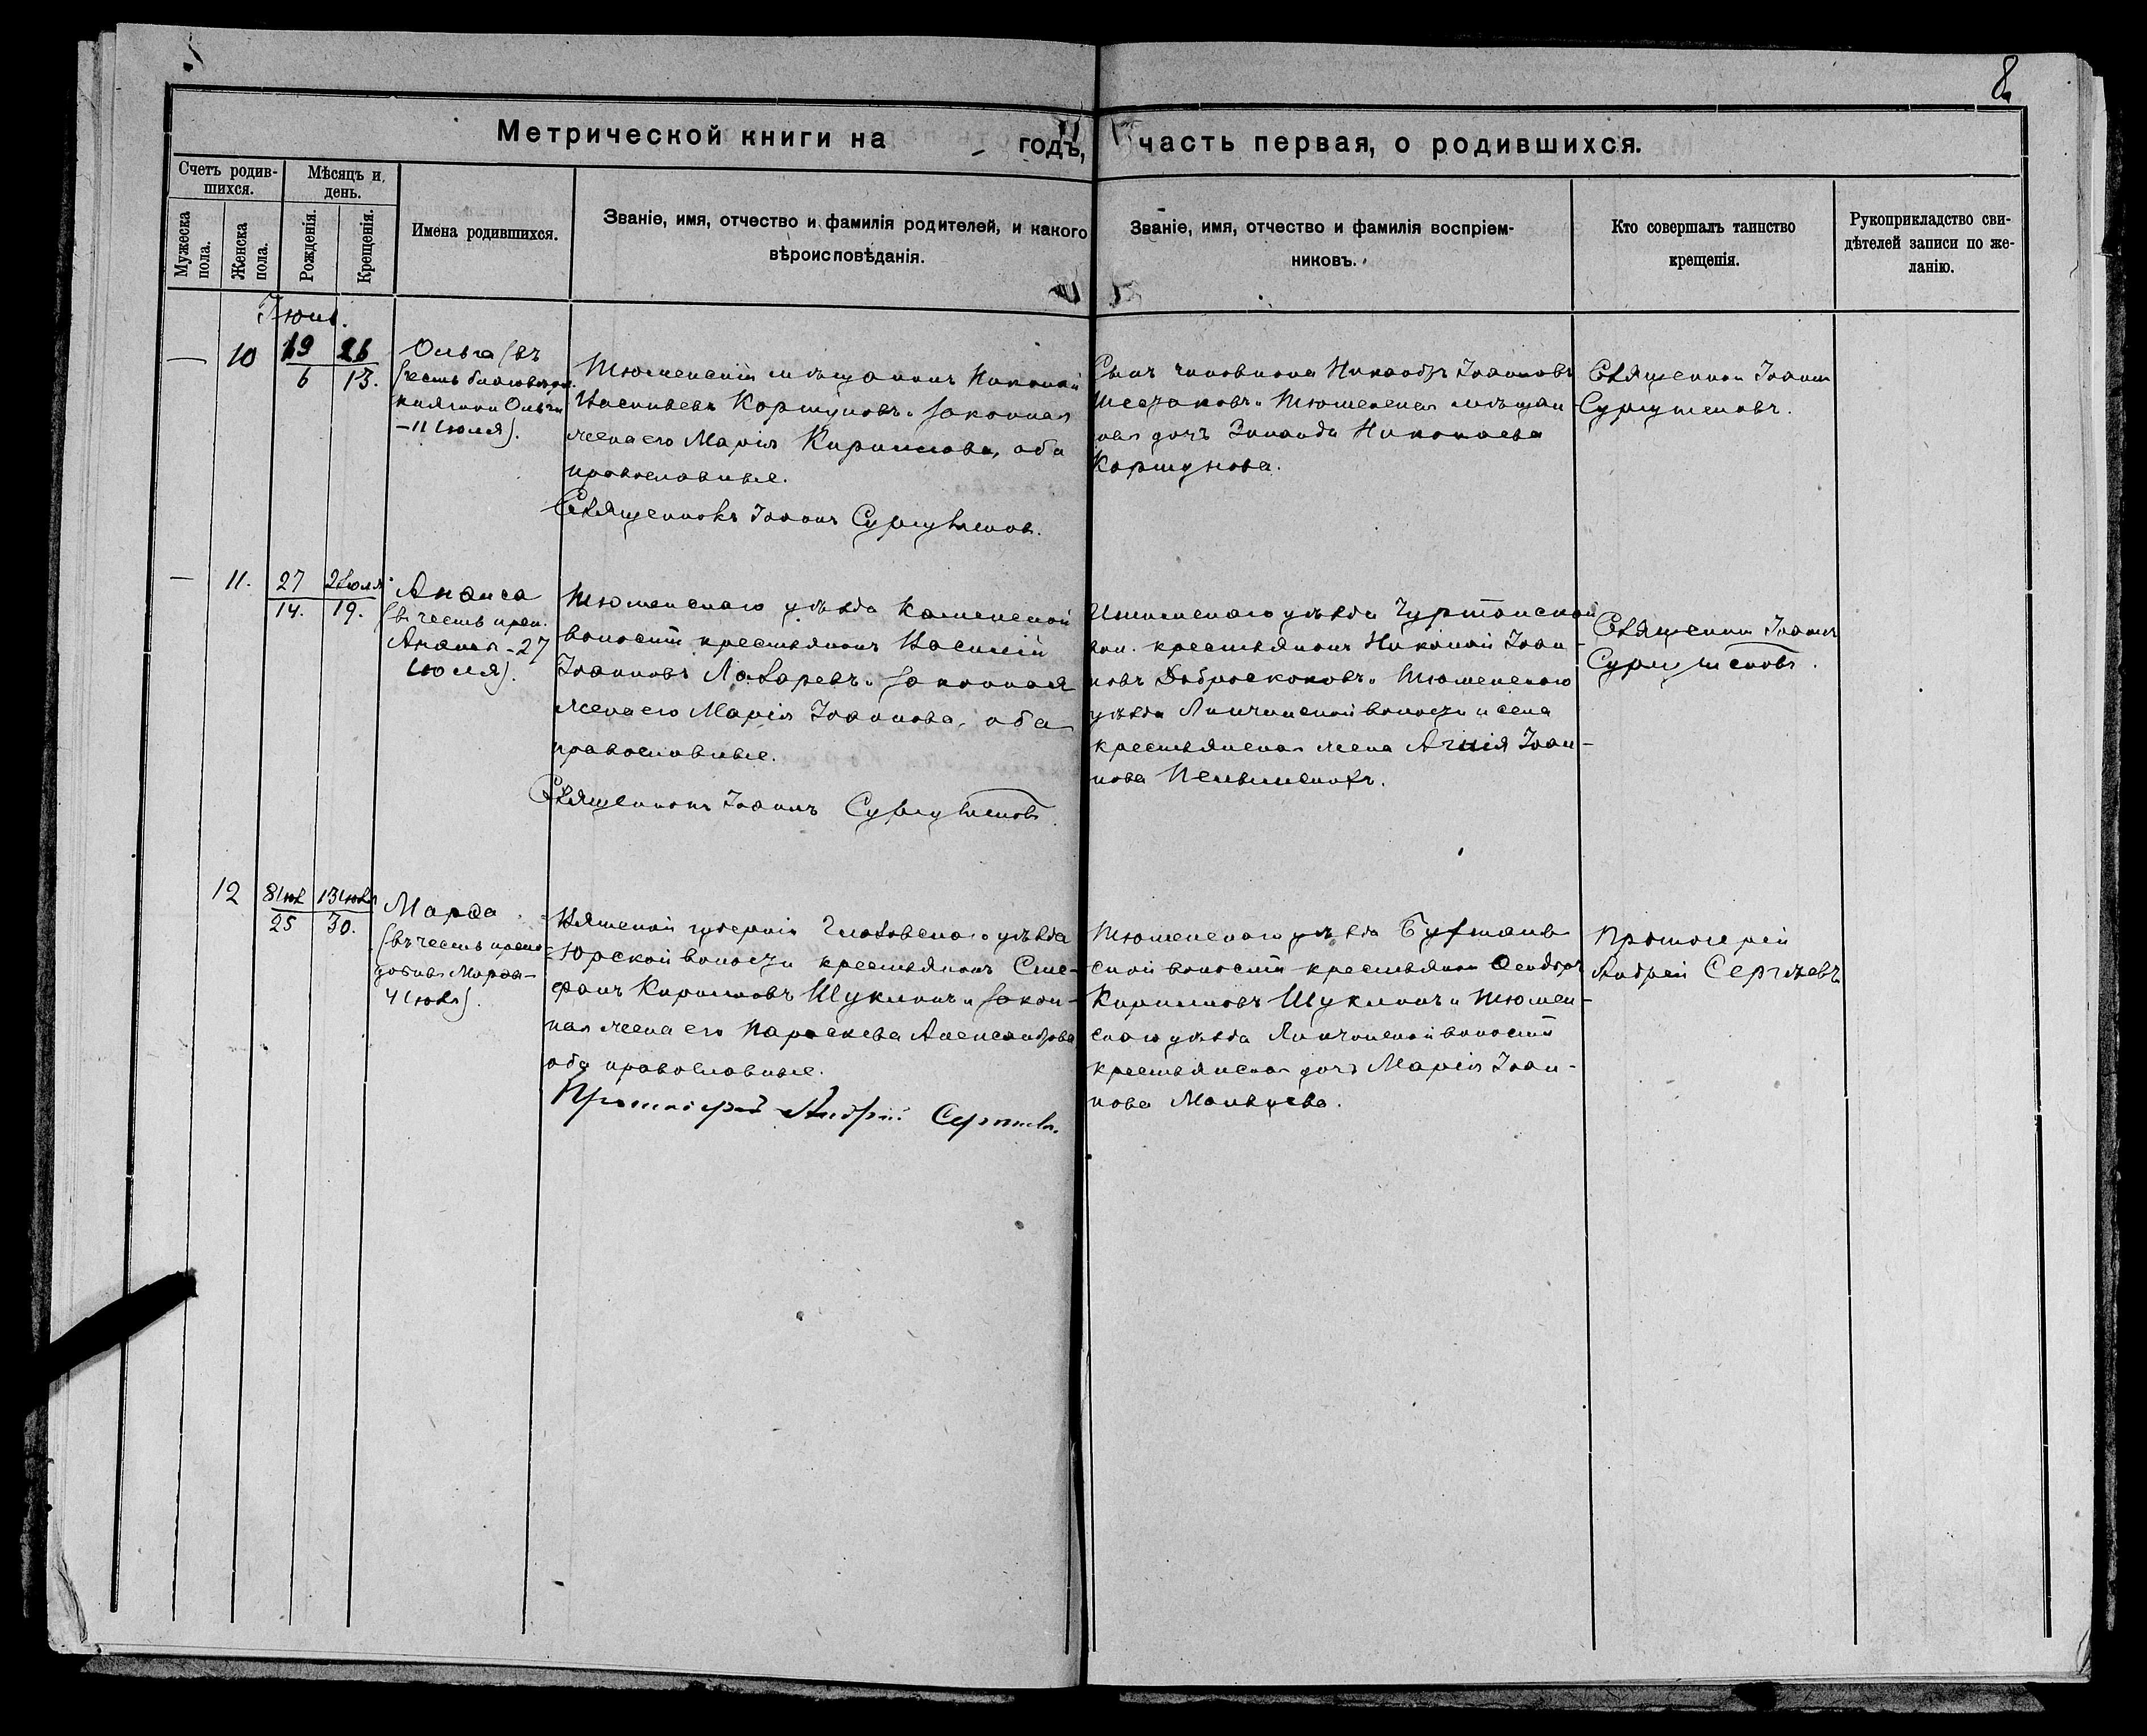 8.
Метрической книги на годъ, часть первая, о родившихся.
Счетъ родив-
шихся.
Мѣсяцъ и
день.
Мужеска
пола.
Женска
пола.
Рожденія.
Крещенія.
Имена родившихся.
Званіе, имя, отчество и фамилія родителей, и какого
вѣроисповѣданія.
Званіе, имя, отчество и фамилія воспріем-
никовъ.
Кто совершалъ таинство
крещенія.
Рукоприкладство сви-
дѣтелей записи по же-
ланію.
— 10
19 26
6 13.
Ольга (въ
честь
княгини Ольги
– 11 іюля).
Тюменскій мѣщанинъ Николай
Васильевъ Коршуновъ и законная
жена его Марія Кириллова, оба
православные.
Священникъ Іоаннъ Сургутсковъ.
Сынъ чиновника Никаноръ Іоанновъ
и Тюменская мѣщан-
ская дочь Зинаида Николаева
Коршунова.
Священникъ Іоаннъ
Сургутсковъ.
— 11.
27 2 Іюля
14. 19.
Анѳиса
(въ честь преп.
27
іюля).
Тюменскаго уѣзда Каменской
волости крестьянинъ Василій
Іоанновъ Лазаревъ и законная
жена его Марія Іоаннова, оба
православные.
Священникъ Іоаннъ Сургутсковъ.
Ишимскаго уѣзда Чуртанской
вол. крестьянинъ Николай Іоан-
новъ Доброскоковъ и Тюменскаго
уѣзда Липчинской волости и села
крестьянская жена Агнія Іоан-
нова
Священникъ Іоаннъ
Сургутсковъ.
12
8 іюл 13 іюля
25 30.
Марѳа
(въ честь препо-
добныя Марѳы –
4 іюля).
Вятской губерніи Глазовскаго уѣзда
Юрской волости крестьянинъ Сте-
фанъ Кирилловъ Шуклинъ и закон-
ная жена его Параскева Александрова,
оба православные.
Протоіерей Андрей Сергѣевъ.
Тюменскаго уѣзда
ской волости крестьянинъ Ѳеодоръ
Кирилловъ Шуклинъ и Тюмен-
скаго уѣзда Липчинской волости
крестьянская дочь Марія Іоан-
нова
Протоіерей
Андрей Сергѣевъ